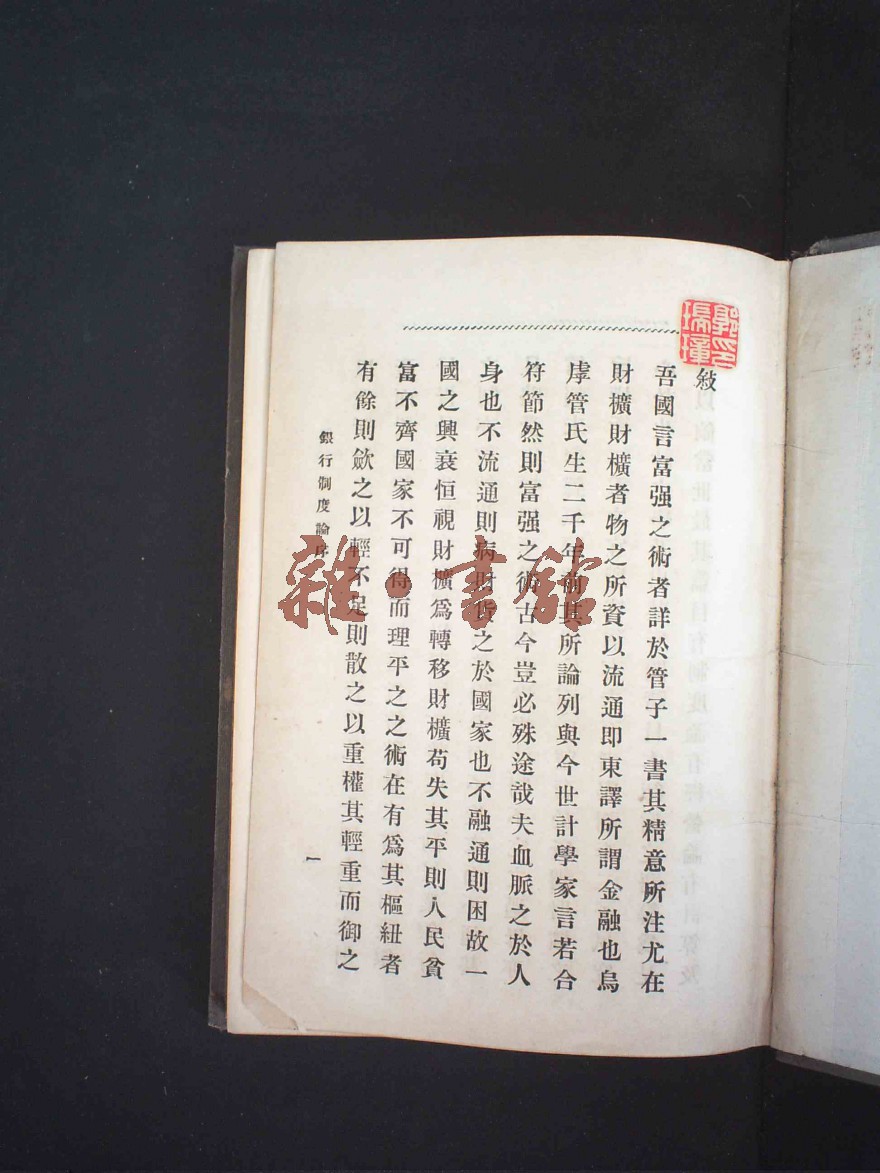 敍
吾國言富强之術者詳於管子一書其精意所注尤在
財擴財擴者物之所資以流通即東譯所謂金融也烏
虖管氏生二千年前其所論列與今世計學家言若合
符節然則富强之術古今豈必殊途哉夫血脈之於人
身也不流通則病財貨之於國家也不融通則困故一
國之興衰恒視財擴爲轉移財擴苟失其平則人民貧
富不齊國家不可得而理平之之術在有爲其樞紐者
有餘則歛之以輕不足則散之以重權其輕重而御之
銀行制度論序
一
雜·書館